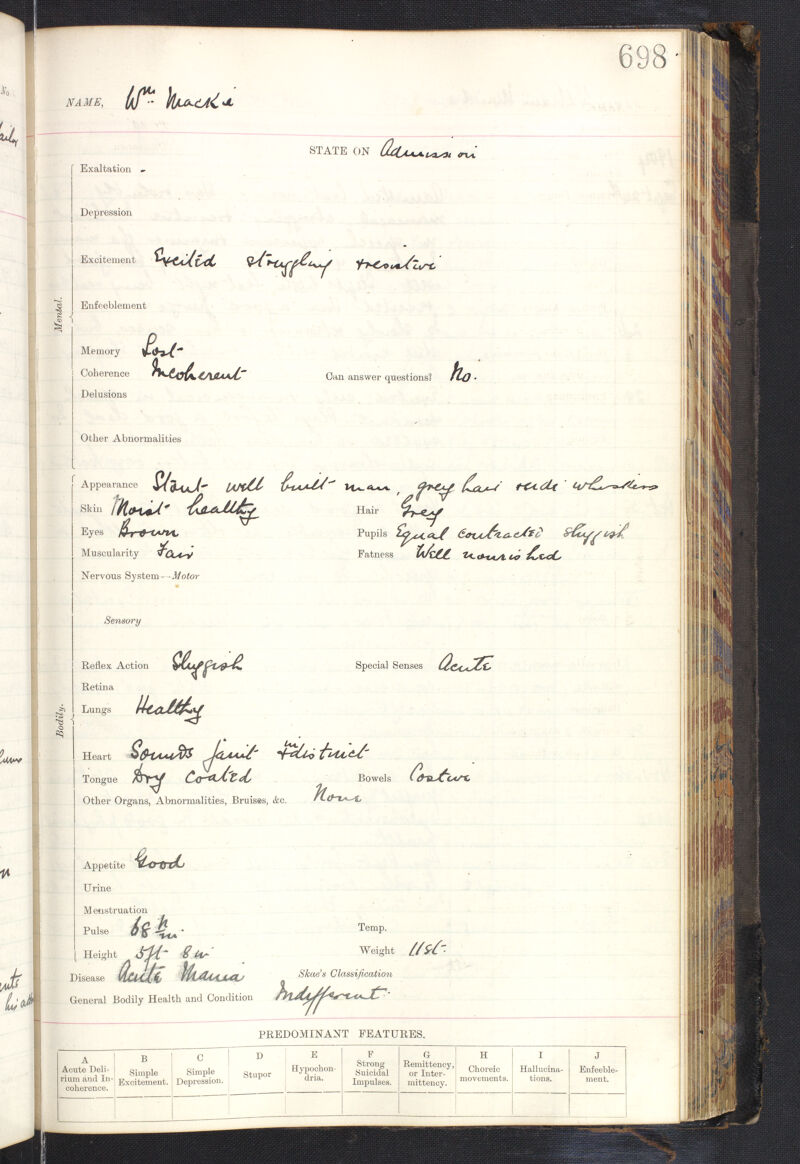 698
NAME, Wm Mackie
STATE ON Admission
Mental.
Exaltation -
Depression
Excitement Excited struggling & resistive
Enfeeblement
Memory Lost
Coherence Incoherent Can answer questions? No.
Delusions
Other Abnormalities
Bodily.
Appearance Stout well built man, grey hair side whiskers
Skin Moist healthy Hair Grey
Eyes Brown Pupils Equal contracted sluggish
Muscularity Fair Fatness Well nourished
Nervous System—Motor
Sensory
Reflex Action Sluggish Special Senses Acute
Retina
Lungs Healthy
Heart Sounds faint & indistinct
Tongue Dry coated Bowels Costive
Other Organs, Abnormalities, Bruises, &c. None
Appetite Good
Urine
Menstruation
Pulse 68 Temp.
Height 5ft 8in Weight 11st.
Disease Acute Mania Skae's Classification
General Bodily Health and Condition Indifferent.
PREDOMINANT FEATURES.
A B C D E F G H I J
Acute Deli- Simple Simple Stupor Hypochon- Strong Remittency, Choreic Hallucina- Enfeeble-
rium and In- Excitement. Depression. dria. Suicidal or Inter- movements. tions. ment.
coherence. Impulses. mittency.